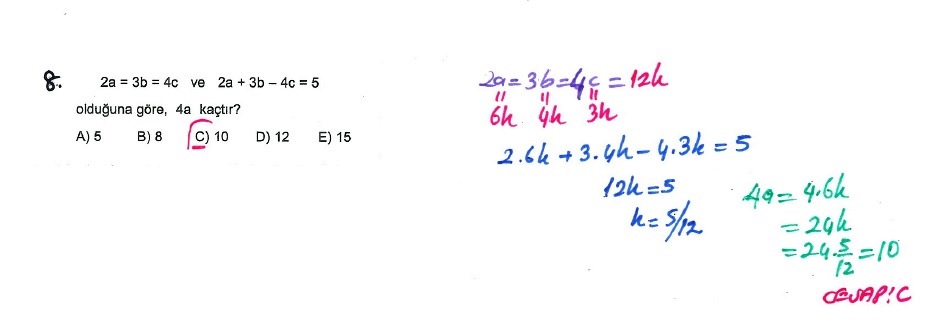 8.
2a = 3b = 4c ve 2a + 3b – 4c = 5
olduğuna göre, 4a kaçtır?
A) 5 B) 8 C) 10 D) 12 E) 15
2a = 3b = 4c = 12k
6k 4k 3k
2.6k + 3.4k – 4.3k = 5
12k = 5
k = 5/12
4a = 4.6k
= 24k
= 24.5/12 = 10
CEVAP: C